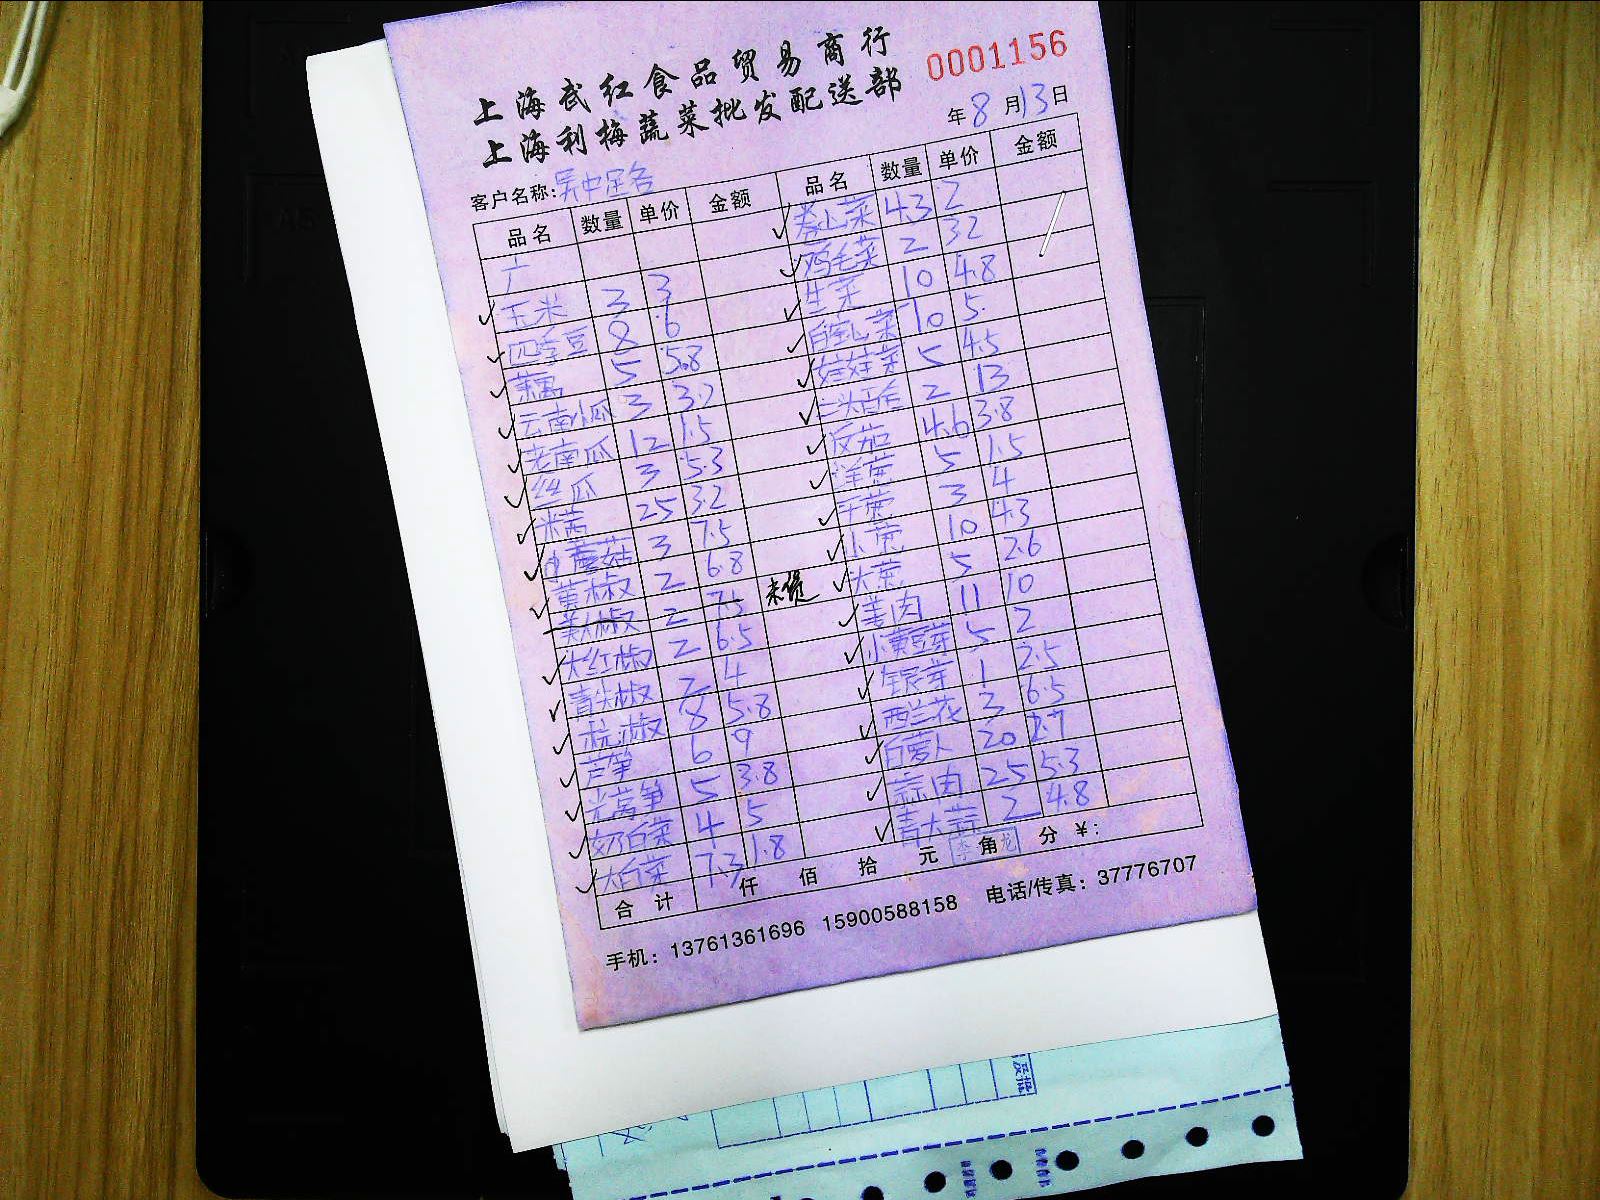 上海武红食品贸易商行
0001156
上海利梅蔬菜批发配送部
年8月13日
客户名称:吴中足各
品名 数量 单价 金额 品名 数量 单价 金额
卷心菜 4.3 2
鸡毛菜 2 3.2
玉米 3 3 生菜 10 4.8
四季豆 8 6 10 5
藕 5 5.8 娃娃菜 5 4.5
云南小瓜 3 3.2 2 13
老南瓜 12 1.5 反茄 4.6 3.8
丝瓜 3 5.3 洋葱 5 1.5
米苋 25 3.2 干葱 3 4
蘑菇 3 7.5 小葱 10 4.3
黄椒 2 6.8 未煲 大葱 5 2.6
美人椒 2 7.5 姜肉 11 10
大红椒 2 6.5 小黄豆芽 5 2
青尖椒 2 4 银芽 1 2.5
杭椒 8 5.8 西兰花 3 6.5
芦笋 6 9 白萝卜 20 1.7
光莴笋 5 3.8 蒜肉 25 5.3
奶白菜 4 5 青大蒜 2 4.8
大白菜 7.3 1.8
合计 仟 佰 拾 元 角 分 ¥:
手机: 13761361696 15900588158 电话/传真: 37776707